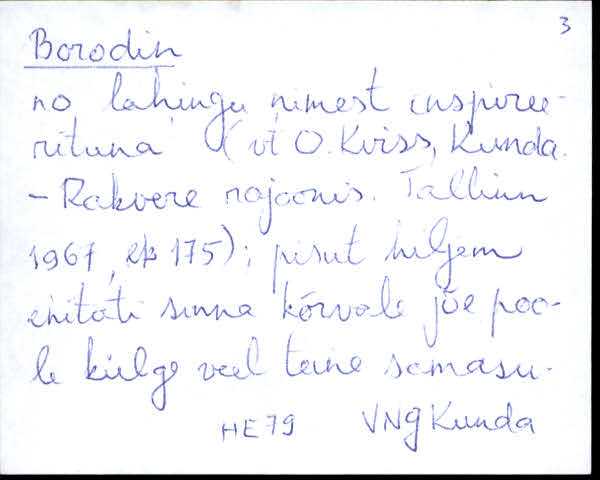 3
Borodin
no lahingu nimest inspiree-
rituna (vt O. Kviss, Kunda.
- Rakvere rajoonis. Tallinn
1967, lk 175); pisut hiljem
ehitati sinna kõrvale jõe poo-
le külge veel teine samasu-
HE79 VNg Kunda